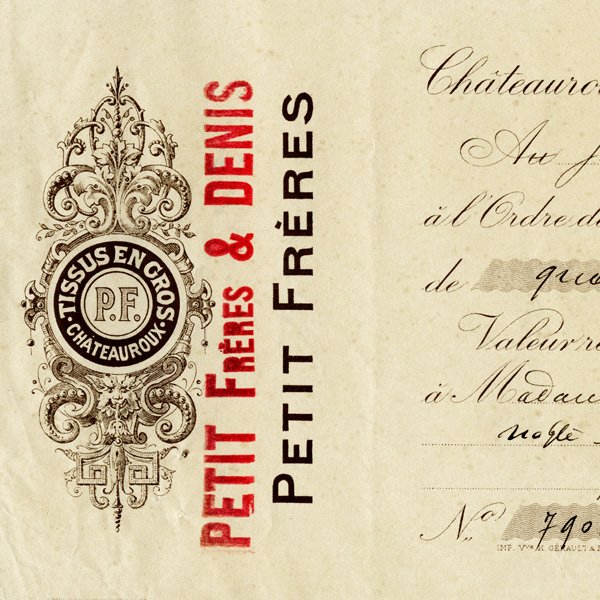 TISSUS EN GROS
P.F.
CHATEAUROUX
PETIT FRÈRES & DENIS
PETIT FRÈRES
Châteaurou
Au
à l'Ordre de
de
Valeur re
à Madam
N°
790
IMP. Vve H. GÉRAULT &